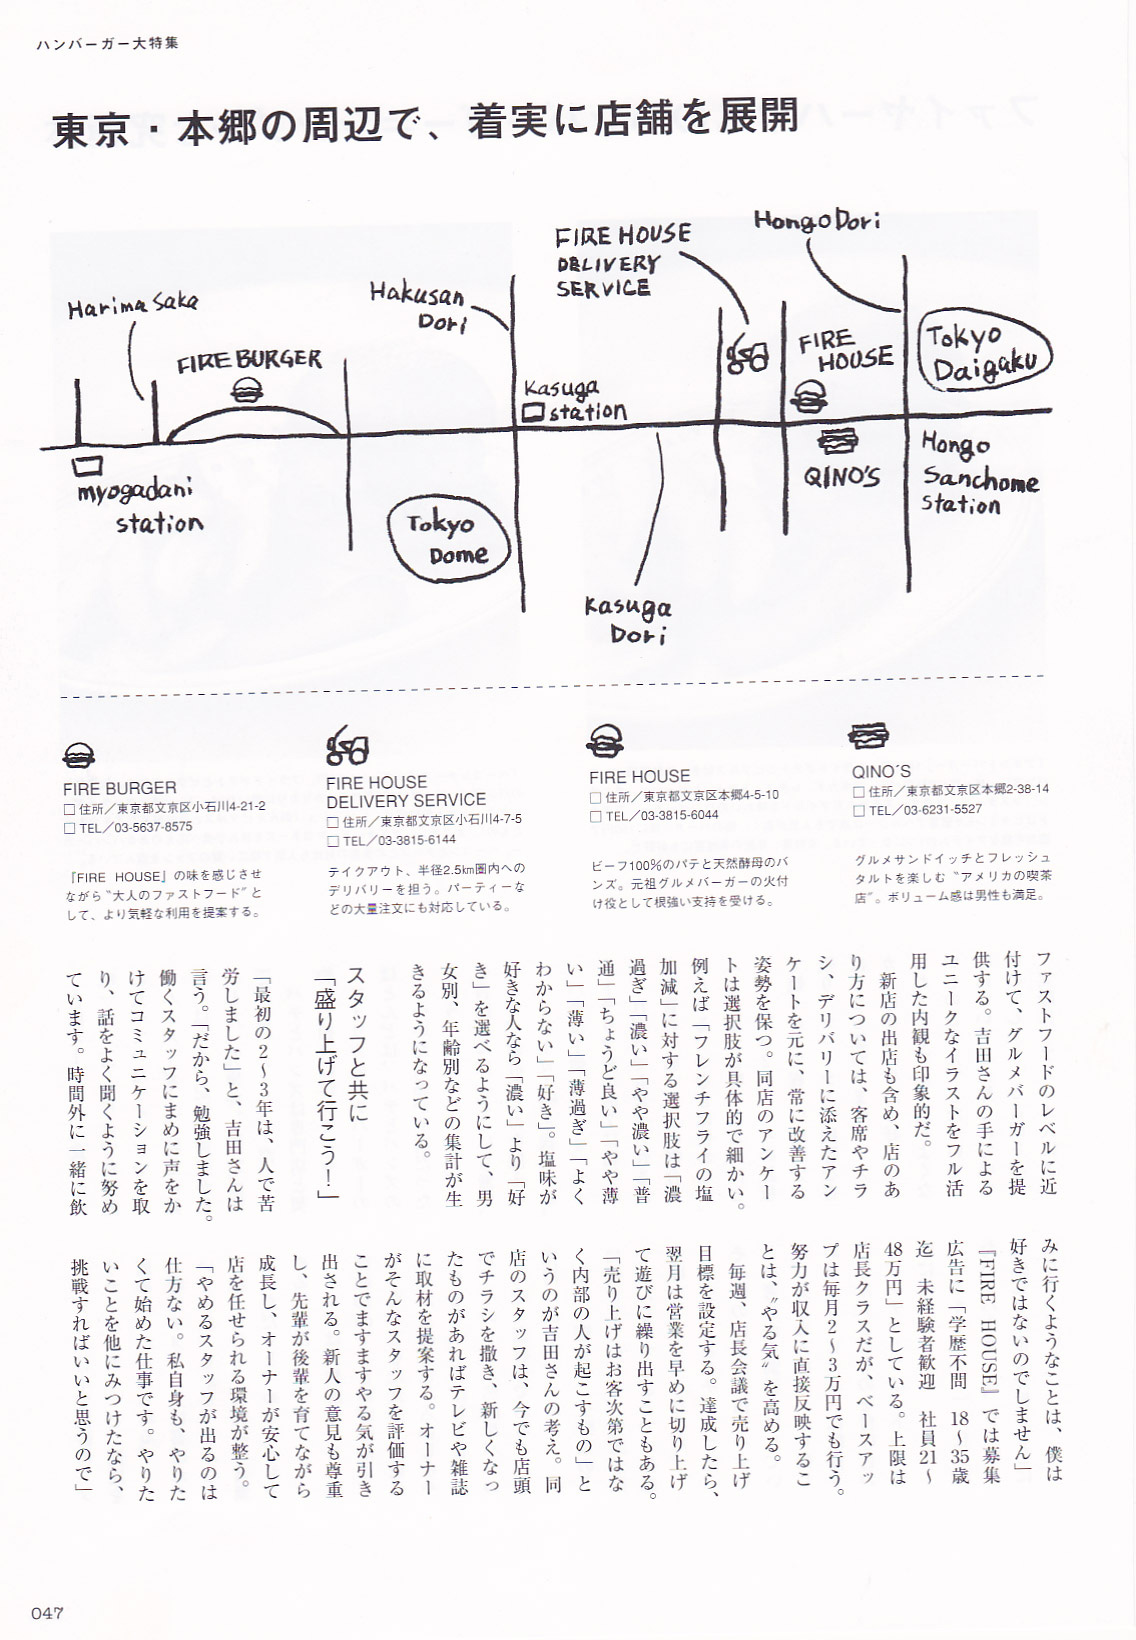 ハンバーガー大特集
東京・本郷の周辺で、着実に店舗を展開
Harima Saka
FIRE BURGER
Hakusan
Dori
FIRE HOUSE
DELIVERY
SERVICE
Hongo Dori
Kasuga
station
FIRE
HOUSE
Tokyo
Daigaku
myogadani
station
Tokyo
Dome
QINO'S
Hongo
Sanchome
station
Kasuga
Dori
FIRE BURGER
□ 住所／東京都文京区小石川4-21-2
□ TEL／03-5637-8575
『FIRE HOUSE』の味を感じさせ
ながら“大人のファストフード”と
して、より気軽な利用を提案する。
FIRE HOUSE
DELIVERY SERVICE
□ 住所／東京都文京区小石川4-7-5
□ TEL／03-3815-6144
テイクアウト、半径2.5km圏内への
デリバリーを担う。パーティーな
どの大量注文にも対応している。
FIRE HOUSE
□ 住所／東京都文京区本郷4-5-10
□ TEL／03-3815-6044
ビーフ100%のパテと天然酵母のバ
ンズ。元祖グルメバーガーの火付
け役として根強い支持を受ける。
QINO´S
□ 住所／東京都文京区本郷2-38-14
□ TEL／03-6231-5527
グルメサンドイッチとフレッシュ
タルトを楽しむ“アメリカの喫茶
店”。ボリューム感は男性も満足。
ファストフードのレベルに近
付けて、グルメバーガーを提
供する。吉田さんの手による
ユニークなイラストをフル活
用した内観も印象的だ。
新店の出店も含め、店のあ
り方については、客席やチラ
シ、デリバリーに添えたアン
ケートを元に、常に改善する
姿勢を保つ。同店のアンケー
トは選択肢が具体的で細かい。
例えば「フレンチフライの塩
加減」に対する選択肢は「濃
過ぎ」「濃い」「やや濃い」「普
通」「ちょうど良い」「やや薄
い」「薄い」「薄過ぎ」「よく
わからない」「好き」。塩味が
好きな人なら「濃い」より「好
き」を選べるようにして、男
女別、年齢別などの集計が生
きるようになっている。
スタッフと共に
「盛り上げて行こう！」
「最初の2〜3年は、人で苦
労しました」と、吉田さんは
言う。「だから、勉強しました。
働くスタッフにまめに声をか
けてコミュニケーションを取
り、話をよく聞くように努め
ています。時間外に一緒に飲
みに行くようなことは、僕は
好きではないのでしません」
『FIRE HOUSE』では募集
広告に「学歴不問 18〜35歳
迄 未経験者歓迎 社員21〜
48万円」としている。上限は
店長クラスだが、ベースアッ
プは毎月2〜3万円でも行う。
努力が収入に直接反映するこ
とは、“やる気”を高める。
毎週、店長会議で売り上げ
目標を設定する。達成したら、
翌月は営業を早めに切り上げ
て遊びに繰り出すこともある。
「売り上げはお客次第ではな
く内部の人が起こすもの」と
いうのが吉田さんの考え。同
店のスタッフは、今でも店頭
でチラシを撒き、新しくなっ
たものがあればテレビや雑誌
に取材を提案する。オーナー
がそんなスタッフを評価する
ことでますますやる気が引き
出される。新人の意見も尊重
し、先輩が後輩を育てながら
成長し、オーナーが安心して
店を任せられる環境が整う。
「やめるスタッフが出るのは
仕方ない。私自身も、やりた
くて始めた仕事です。やりた
いことを他にみつけたなら、
挑戦すればいいと思うので」
047